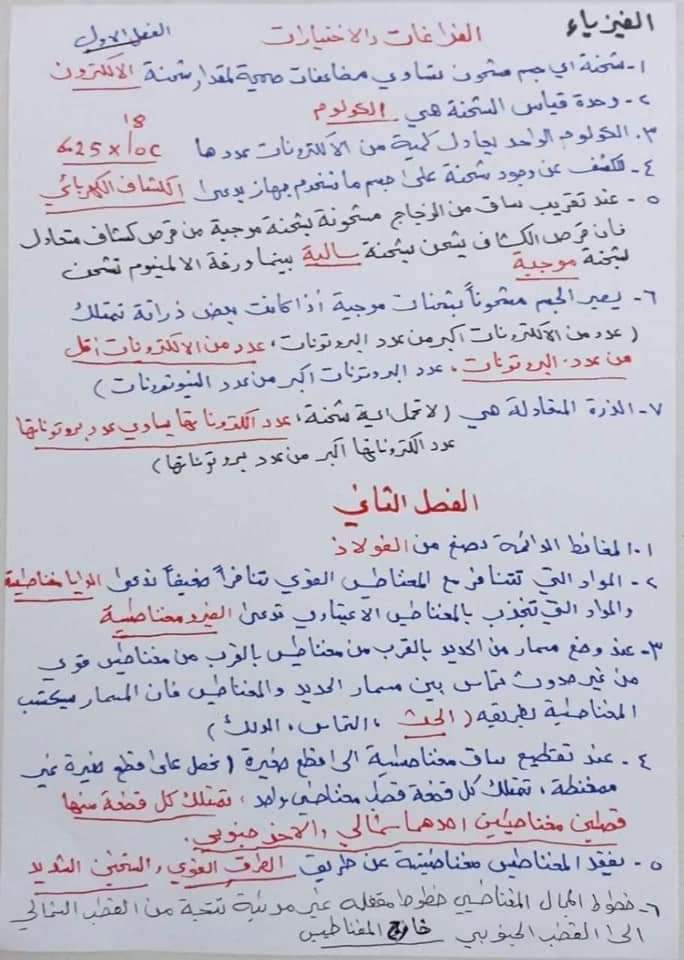 الفيزياء
الفراغات والاختيارات
الفصل الاول
١- شحنة اي جسم مشحون تساوي مضاعفات صحيحة لمقدار شحنة الالكترون
٢- وحدة قياس الشحنة هي الكولوم
٣- الكولوم الواحد يعادل كمية من الالكترونات عددها 6.25x10¹⁸C
٤- للكشف عن وجود شحنة على جسم ما نستخدم جهاز يدعى الكشاف الكهربائي
٥- عند تقريب ساق من الزجاج مشحونة بشحنة موجبة من قرص كشاف متعادل
فان قرص الكشاف يشحن بشحنة سالبة بينما ورقة الالمنيوم تشحن
بشحنة موجبة
٦- يصير الجسم مشحوناً بشحنات موجبة أذا كانت بعض ذراته تمتلك
(عدد من الالكترونات اكبر من عدد البروتونات، عدد من الالكترونات أقل
من عدد البروتونات، عدد البروتونات اكبر من عدد النيوترونات)
٧- الذرة المتعادلة هي (لاتحمل اية شحنة، عدد الكتروناتها يساوي عدد بروتوناتها
عدد الكتروناتها اكبر من عدد بروتوناتها)
الفصل الثاني
١- المغانط الدائمة تصنع من الفولاذ
٢- المواد التي تتنافر مع المغناطيس القوي تنافراً ضعيفاً تدعى الدايا مغناطيسية
والمواد التي تنجذب بالمغناطيس الاعتيادي تدعى الفيرومغناطيسية
٣- عند وضع مسمار من الحديد بالقرب من مغناطيس بالقرب من مغناطيس قوي
من غير حدوث تماس بين مسمار الحديد والمغناطيس فان المسمار سيكتسب
المغناطيسية بطريقة (الحث، التماس، الدلك)
٤- عند تقطيع ساق مغناطيسية الى قطع صغيرة (نحصل على قطع صغيرة غير
ممغنطة، تمتلك كل قطعة قطب مغناطيسي واحد، تمتلك كل قطعة منها
قطبين مغناطيسين احدهما شمالي والاخر جنوبي.
٥- يفقد المغناطيس مغناطيسيته عن طريق الطرق القوي والتسخين الشديد
٦- خطوط المجال المغناطيسي خطوط مقفله غير مرئية تتجه من القطب الشمالي
الى القطب الجنوبي خارج المغناطيس